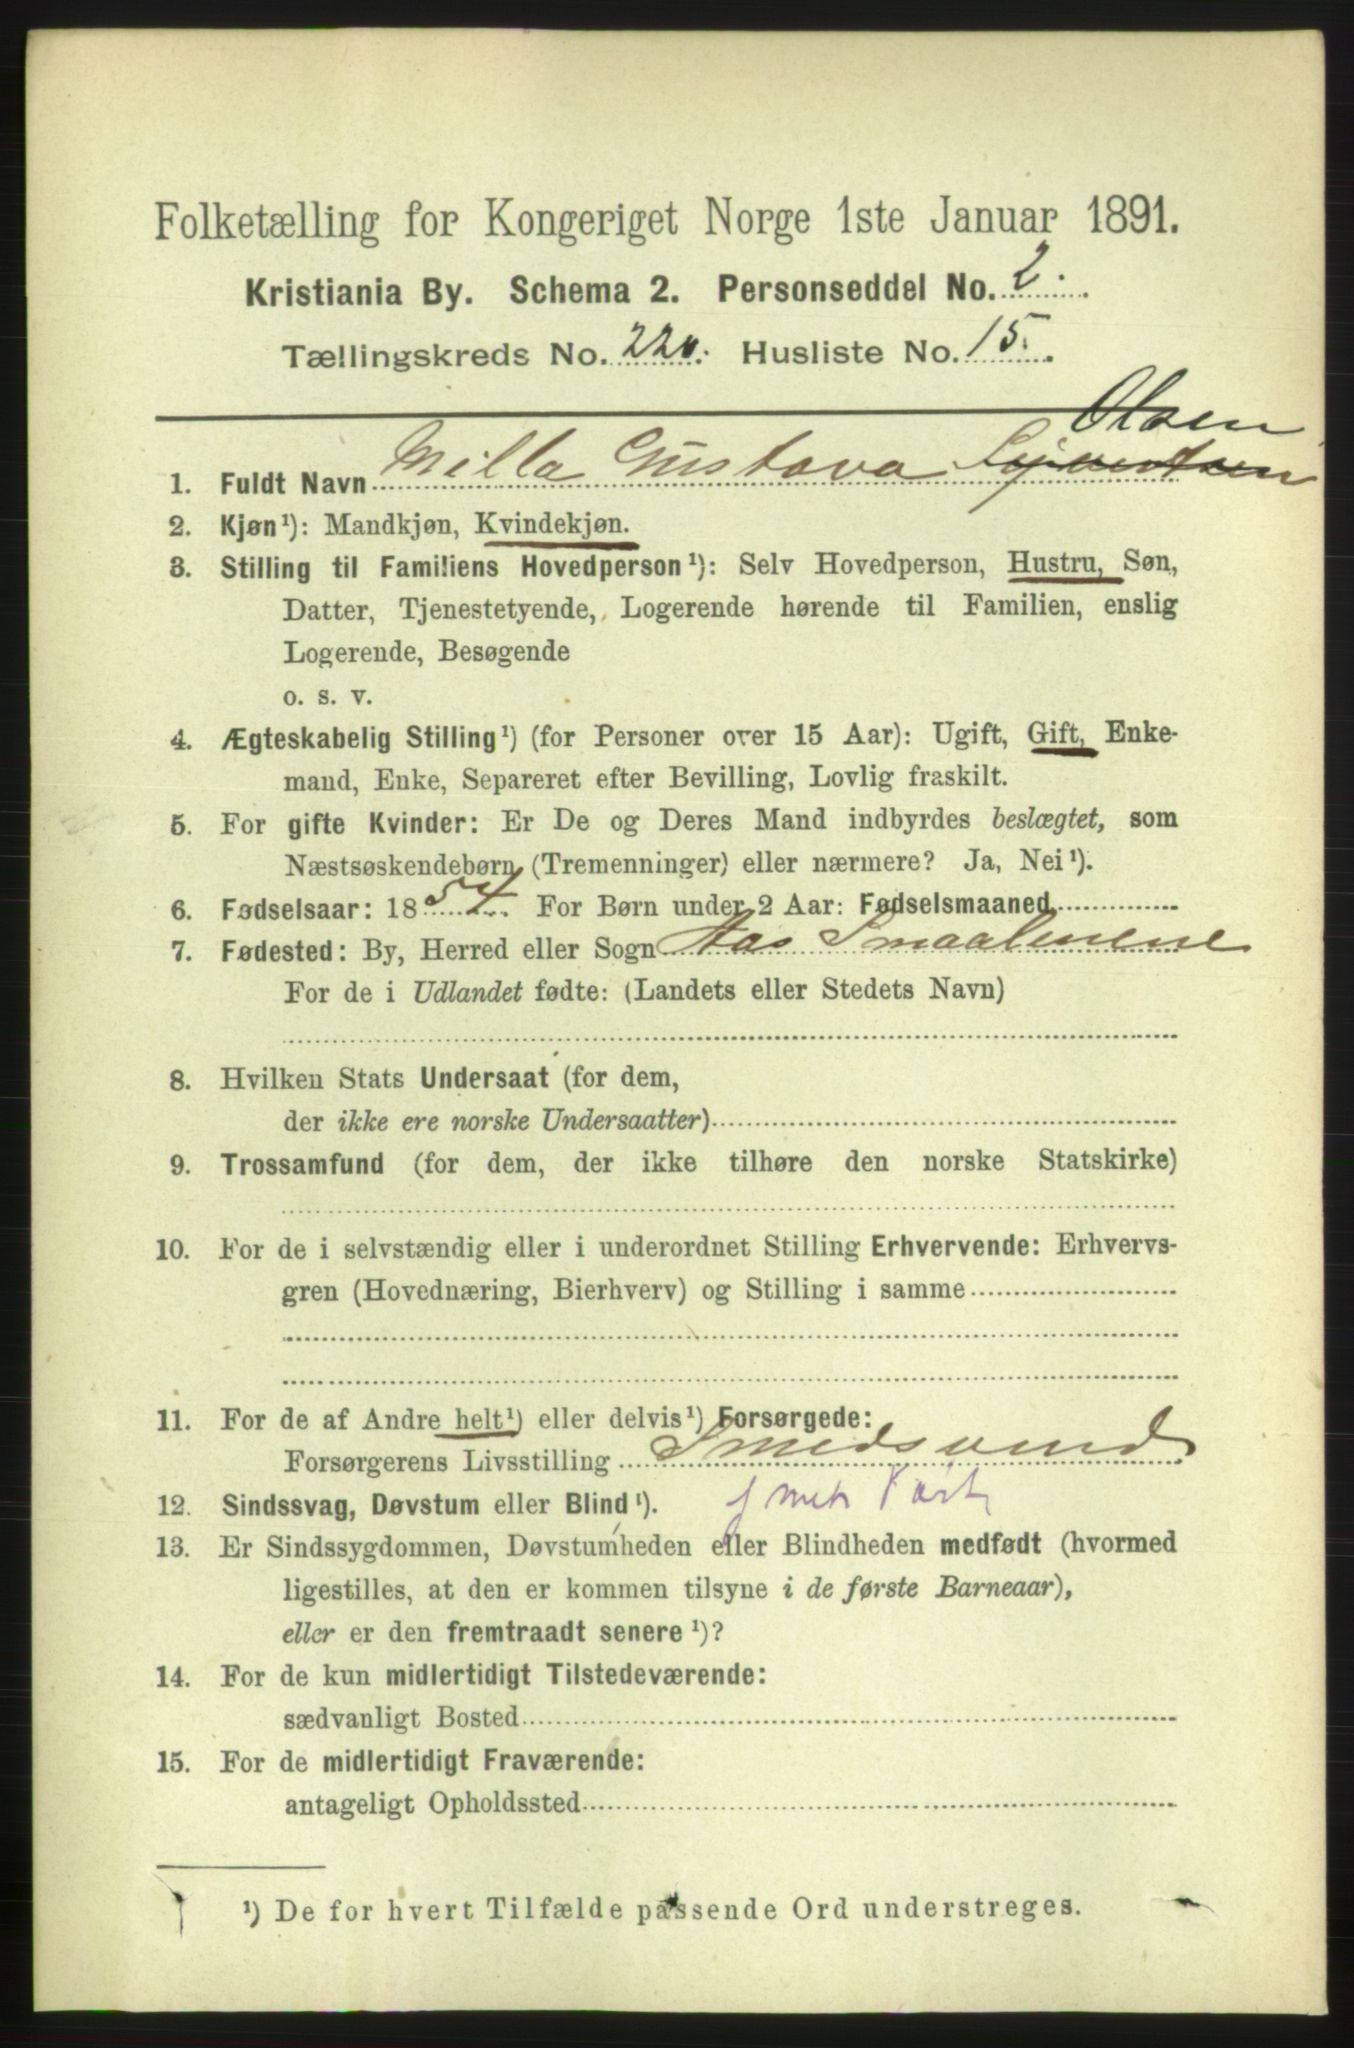 Folketælling for Kongeriget Norge 1ste Januar 1891.
Kristiania By. Schema 2. Personseddel No. 2.
Tællingskreds No. 220. Husliste No. 15.
Olsen
1. Fuldt Navn Milla Gustava
2. Kjøn¹): Mandkjøn, Kvindekjøn.
3. Stilling til Familiens Hovedperson¹): Selv Hovedperson, Hustru, Søn,
Datter, Tjenestetyende, Logerende hørende til Familien, enslig
Logerende, Besøgende
o. s. v.
4. Ægteskabelig Stilling¹) (for Personer over 15 Aar): Ugift, Gift, Enke-
mand, Enke, Separeret efter Bevilling, Lovlig fraskilt.
5. For gifte Kvinder: Er De og Deres Mand indbyrdes beslægtet, som
Næstsøskendebørn (Tremenninger) eller nærmere? Ja, Nei¹).
6. Fødselsaar: 1854. For Børn under 2 Aar: Fødselsmaaned
7. Fødested: By, Herred eller Sogn Aas Smaalenene
For de i Udlandet fødte: (Landets eller Stedets Navn)
8. Hvilken Stats Undersaat (for dem,
der ikke ere norske Undersaatter)
9. Trossamfund (for dem, der ikke tilhøre den norske Statskirke)
10. For de i selvstændig eller i underordnet Stilling Erhvervende: Erhvervs-
gren (Hovednæring, Bierhverv) og Stilling i samme
11. For de af Andre helt¹) eller delvis¹) Forsørgede:
Forsørgerens Livsstilling Smedsvend
12. Sindssvag, Døvstum eller Blind¹).
13. Er Sindssygdommen, Døvstumheden eller Blindheden medfødt (hvormed
ligestilles, at den er kommen tilsyne i de første Barneaar),
eller er den fremtraadt senere¹)?
14. For de kun midlertidigt Tilstedeværende:
sædvanligt Bosted
15. For de midlertidigt Fraværende:
antageligt Opholdssted
¹) De for hvert Tilfælde passende Ord understreges.